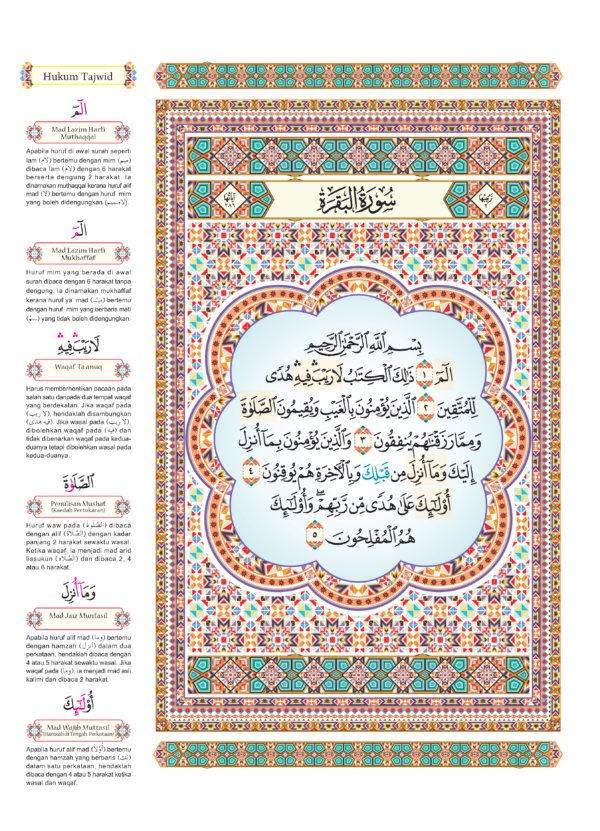 Hukum Tajwid
الٓمٓ
Mad Lazim Harfi
Muthaqqal
Apabila huruf di awal surah seperti
lam (لام) bertemu dengan mim (ميم)
dibaca lam (لام) dengan 6 harakat
berserta dengung 2 harakat. Ia
dinamakan muthaqqal kerana huruf alif
mad (لا) bertemu dengan huruf mim
yang boleh didengungkan (لامميم).
الٓمٓ
Mad Lazim Harfi
Mukhaffaf
Huruf mim yang berada di awal
surah dibaca dengan 6 harakat tanpa
dengung. Ia dinamakan mukhaffaf
kerana huruf ya' mad (ميـ) bertemu
dengan huruf mim yang berbaris mati
(ـمْ) yang tidak boleh didengungkan.
لَا رَيْبَ فِيهِ
Waqaf Ta'anuq
Harus memberhentikan bacaan pada
salah satu daripada dua tempat waqaf
yang berdekatan. Jika waqaf pada
(لا ريب), hendaklah disambungkan
(فيه هدى). Jika wasal pada (لا ريب),
dibolehkan waqaf pada (فيه) dan
tidak dibenarkan waqaf pada kedua-
duanya tetapi dibolehkan wasal pada
kedua-duanya.
ٱلصَّلَوٰةَ
Penulisan Mushaf
(Kaedah Pertukaran)
Huruf waw pada (ٱلصَّلَوٰةَ) dibaca
dengan alif (ٱلصَّلَاةَ) dengan kadar
panjang 2 harakat sewaktu wasal.
Ketika waqaf, ia menjadi mad arid
lissukun (ٱلصَّلَاه) dan dibaca 2, 4
atau 6 harakat.
وَمَآ أُنزِلَ
Mad Jaiz Munfasil
Apabila huruf alif mad (وما) bertemu
dengan hamzah (أنزل) dalam dua
perkataan, hendaklah dibaca dengan
4 atau 5 harakat sewaktu wasal. Jika
waqaf pada (وما), ia menjadi mad asli
kalimi dan dibaca 2 harakat.
أُوْلَٰٓئِكَ
Mad Wajib Muttasil
(Hamzah di Tengah Perkataan)
Apabila huruf alif mad (أُوْلَا) bertemu
dengan hamzah yang berbaris (ئِكَ)
dalam satu perkataan, hendaklah
dibaca dengan 4 atau 5 harakat ketika
wasal dan waqaf.
آيَاتُهَا ٢٨٦ سُورَةُ الْبَقَرَةِ تَرْتِيبُهَا ٢
بِسْمِ ٱللَّهِ ٱلرَّحْمَٰنِ ٱلرَّحِيمِ
الٓمٓ ١ ذَٰلِكَ ٱلْكِتَٰبُ لَا رَيْبَ ۛ فِيهِ ۛ هُدًى
لِّلْمُتَّقِينَ ٢ ٱلَّذِينَ يُؤْمِنُونَ بِٱلْغَيْبِ وَيُقِيمُونَ ٱلصَّلَوٰةَ
وَمِمَّا رَزَقْنَٰهُمْ يُنفِقُونَ ٣ وَٱلَّذِينَ يُؤْمِنُونَ بِمَآ أُنزِلَ
إِلَيْكَ وَمَآ أُنزِلَ مِن قَبْلِكَ وَبِٱلْـَٔاخِرَةِ هُمْ يُوقِنُونَ ٤
أُوْلَٰٓئِكَ عَلَىٰ هُدًى مِّن رَّبِّهِمْ ۖ وَأُوْلَٰٓئِكَ
هُمُ ٱلْمُفْلِحُونَ ٥